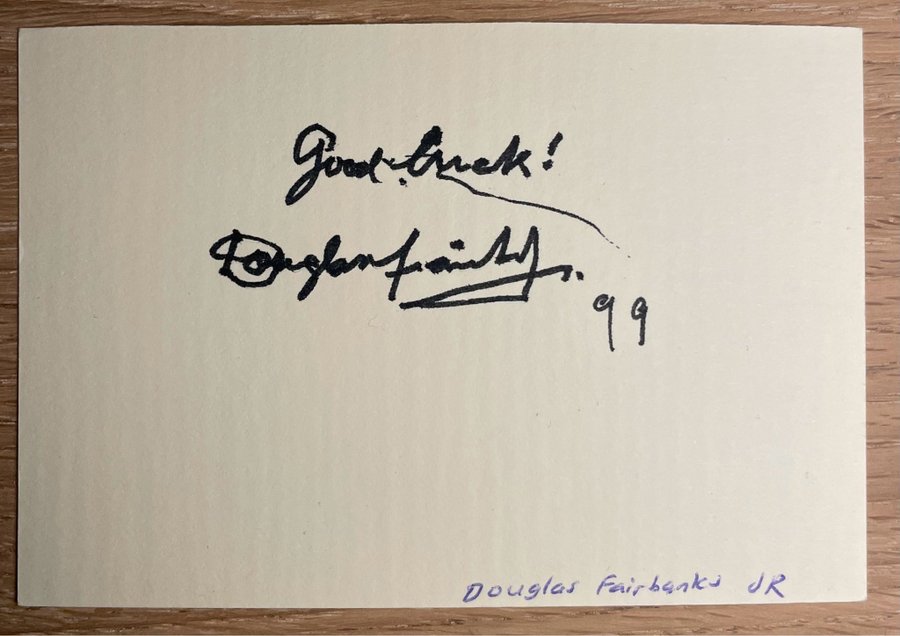 Good luck!
Douglas Fairbanks
99
Douglas Fairbanks JR